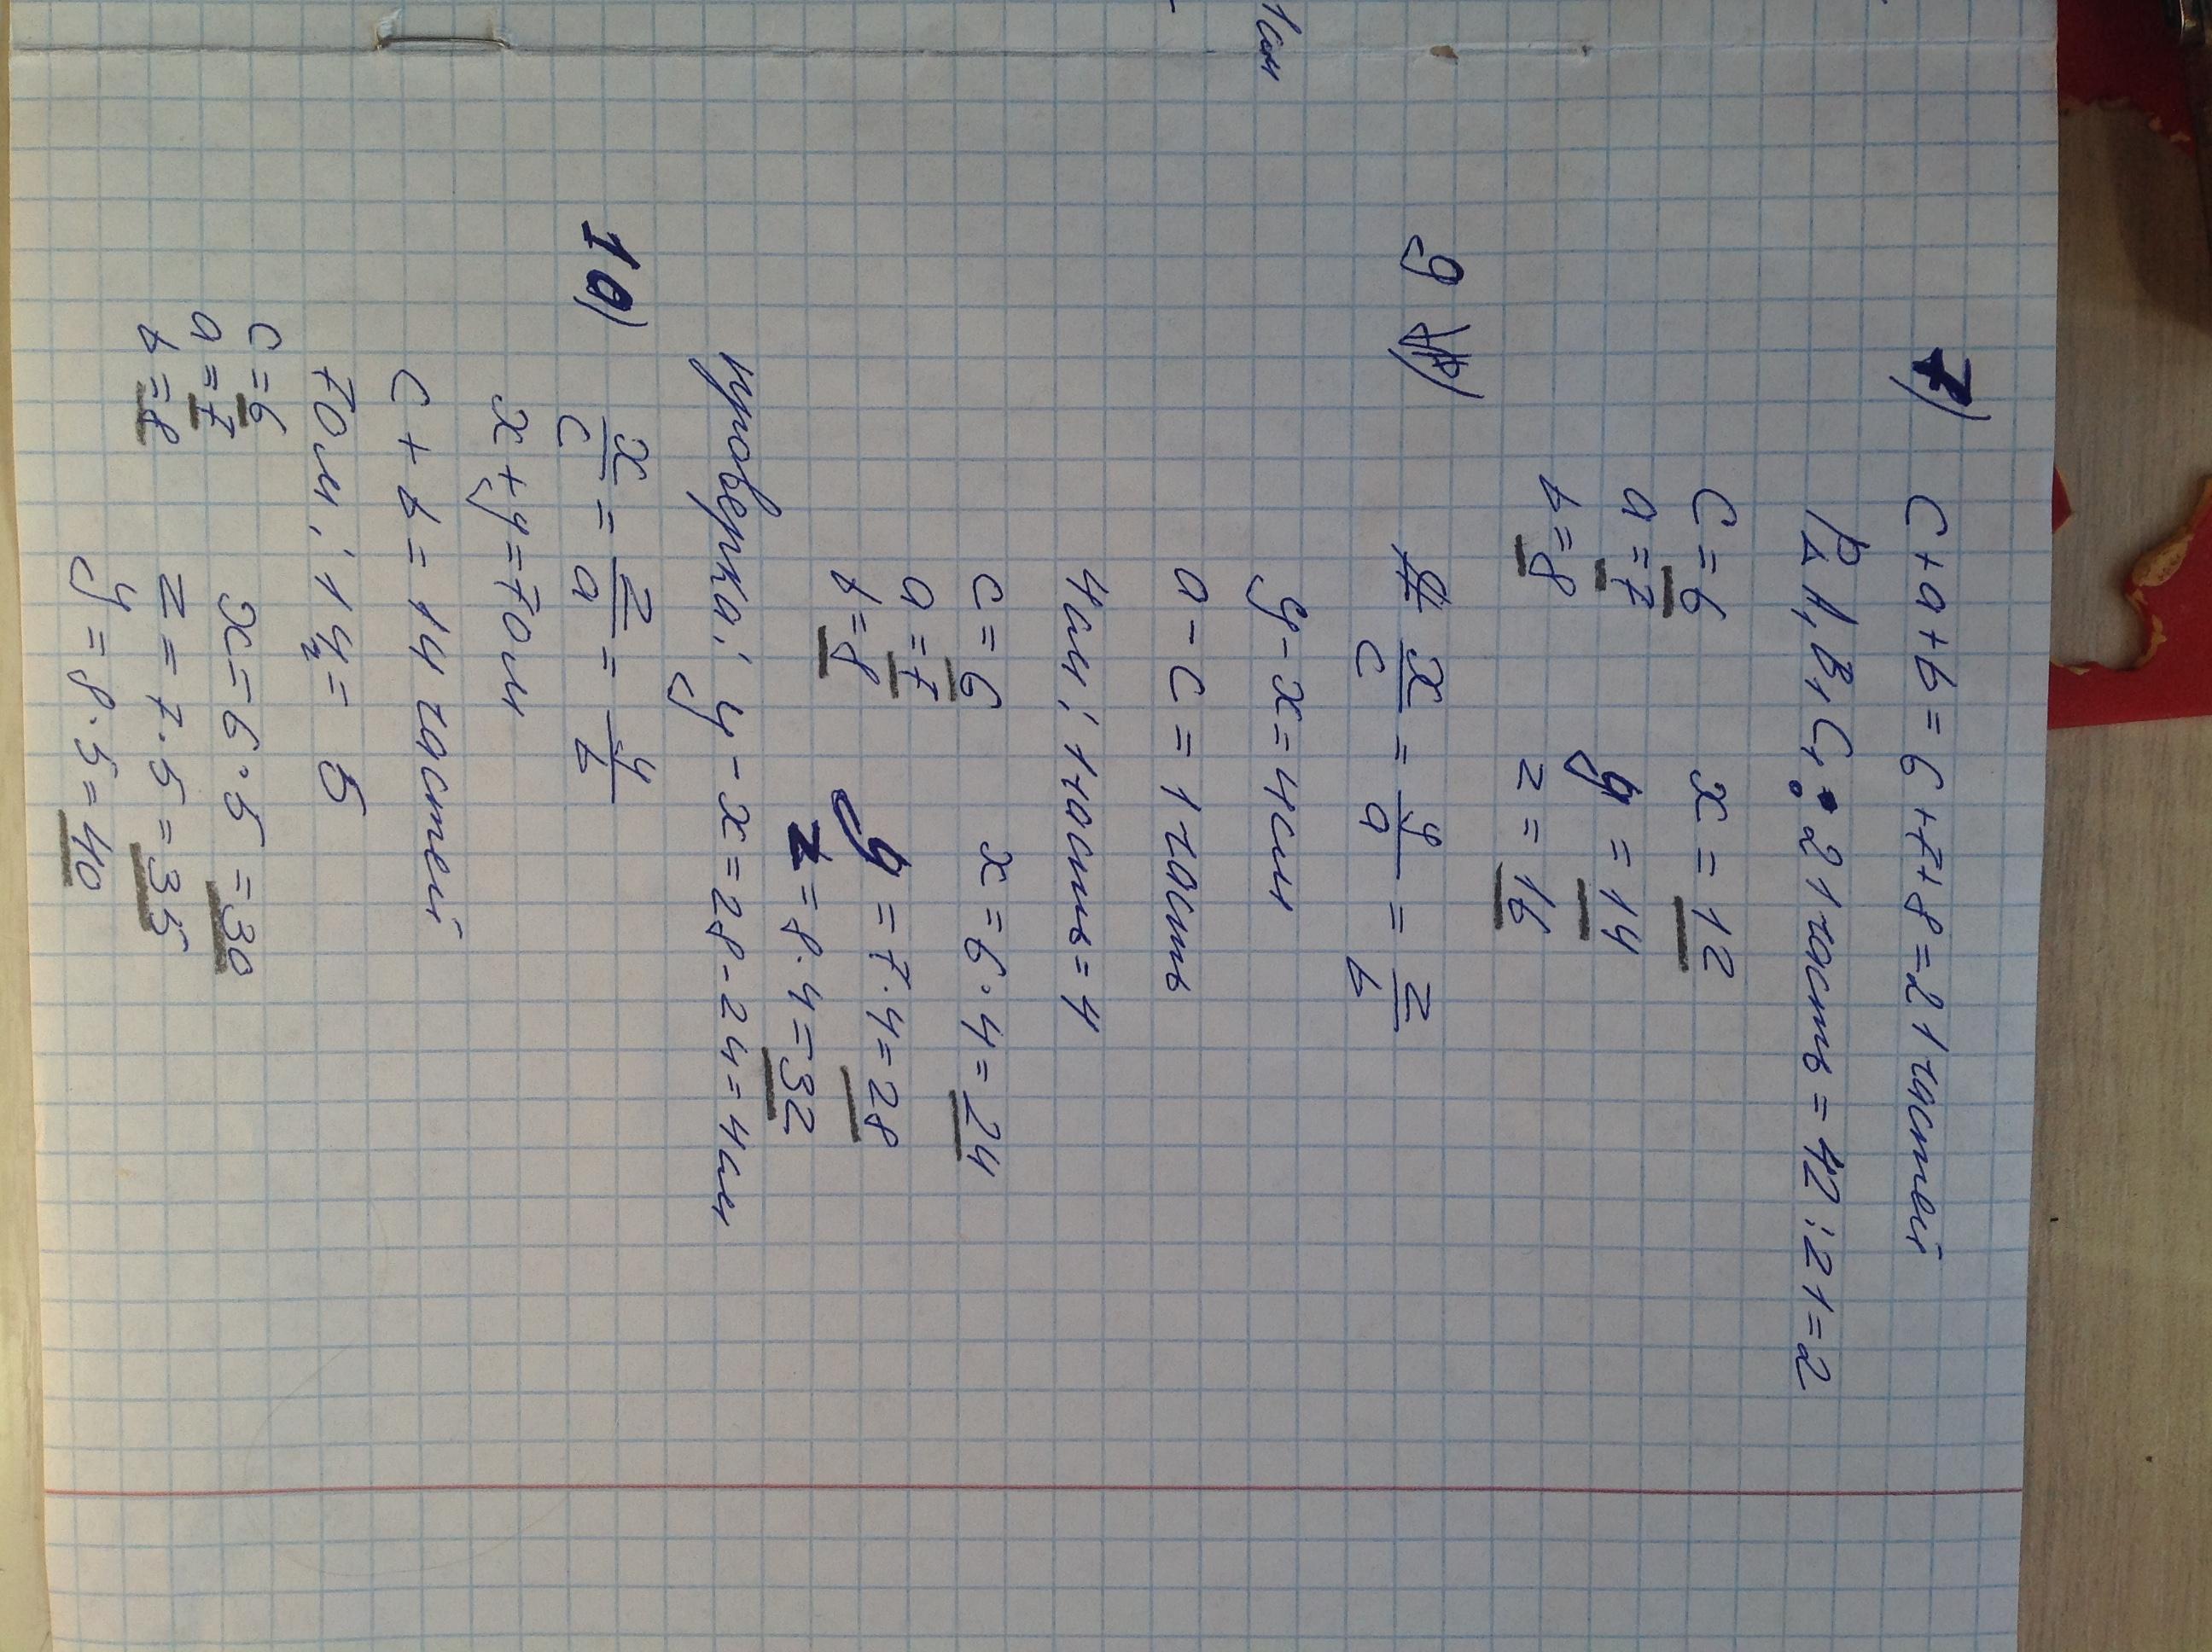 1 см
7) c + a + b = 6 + 7 + 8 = 21 частей
P△A₁B₁C₁: 21 часть = 42 : 21 = 2
c = 6 x = 12
a = 7 y = 14
b = 8 z = 16
9) x/c = y/a = z/b
y - x = 4 см
a - c = 1 часть
4 см : 1 часть = 4
c = 6 x = 6 · 4 = 24
a = 7 y = 7 · 4 = 28
b = 8 z = 8 · 4 = 32
проверка: y - x = 28 - 24 = 4 см
10) x/c = z/a = y/b
x + y = 70 см
c + b = 14 частей
70 см : 14 = 5
c = 6 x = 6 · 5 = 30
a = 7 z = 7 · 5 = 35
b = 8 y = 8 · 5 = 40